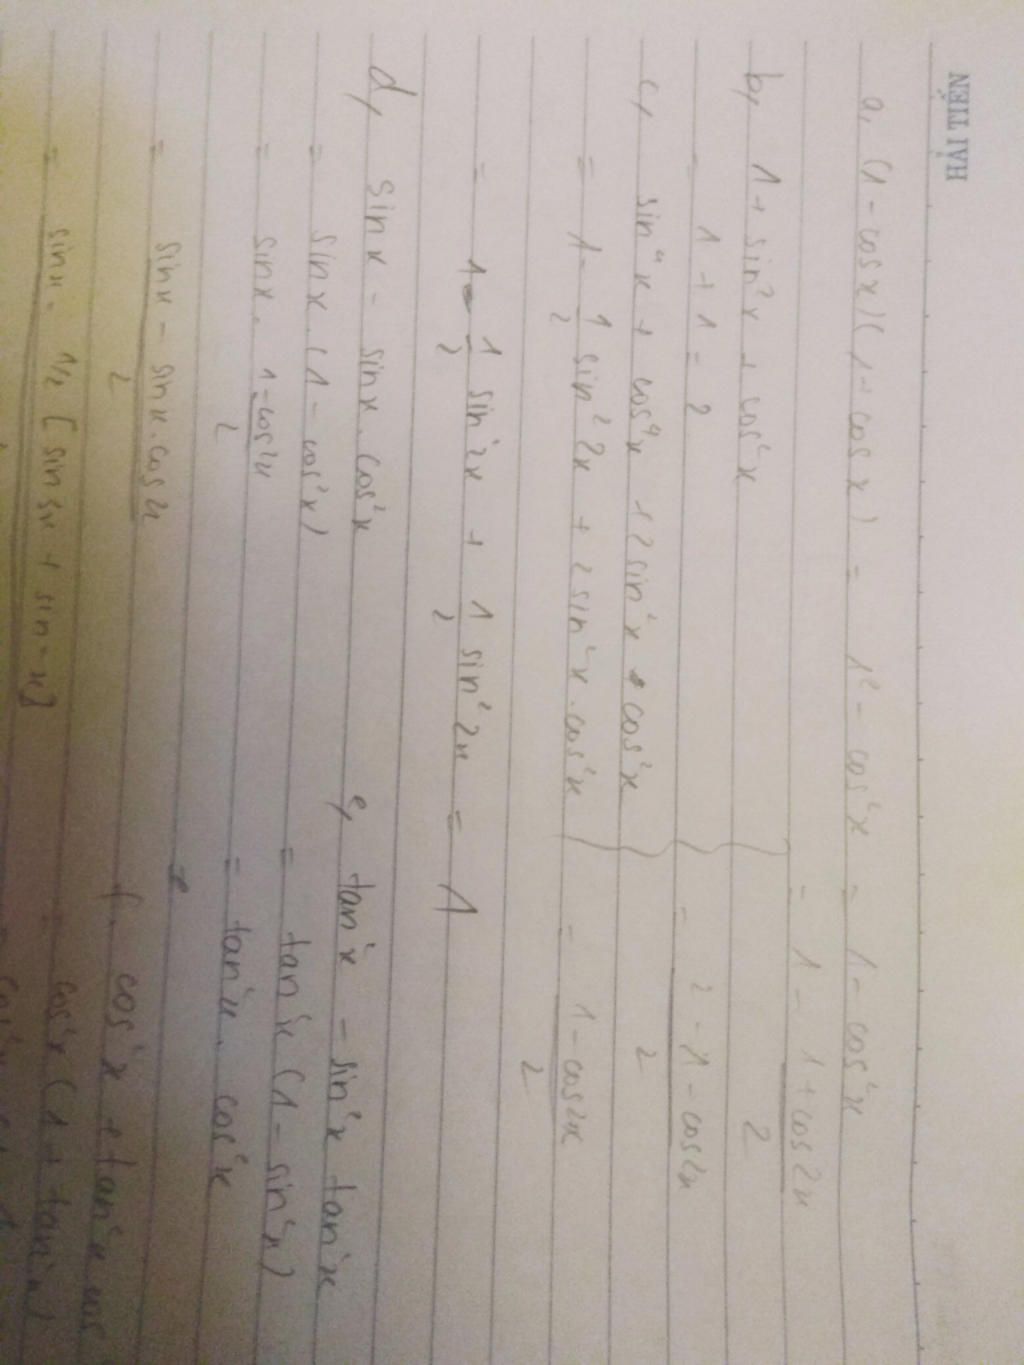 HẢI TIẾN
a, (1 - cos x)(1 + cos x) = 1² - cos²x = 1 - cos²x
= 1 - (1 + cos2x)/2
b, 1 + sin²x + cos²x
= 1 + 1 = 2
= (2 - 1 - cos2x)/2
c, sin⁴x + cos⁴x + 2sin²x . cos²x
= 1 - 1/2 sin²2x + 2sin²x . cos²x
= (1 - cos2x)/2
= 1 - 1/2 sin²2x + 1/2 sin²2x = 1
d, sinx - sinx . cos²x
= sinx . (1 - cos²x)
= sinx . (1 - cos2x)/2
= (sinx - sinx . cos2x)/2
= sinx . 1/2 [sin3x + sin-x]
e, tan²x - sin²x tan²x
= tan²x (1 - sin²x)
= tan²x . cos²x
f, cos²x + tan²x cos
= cos²x (1 + tan²x)